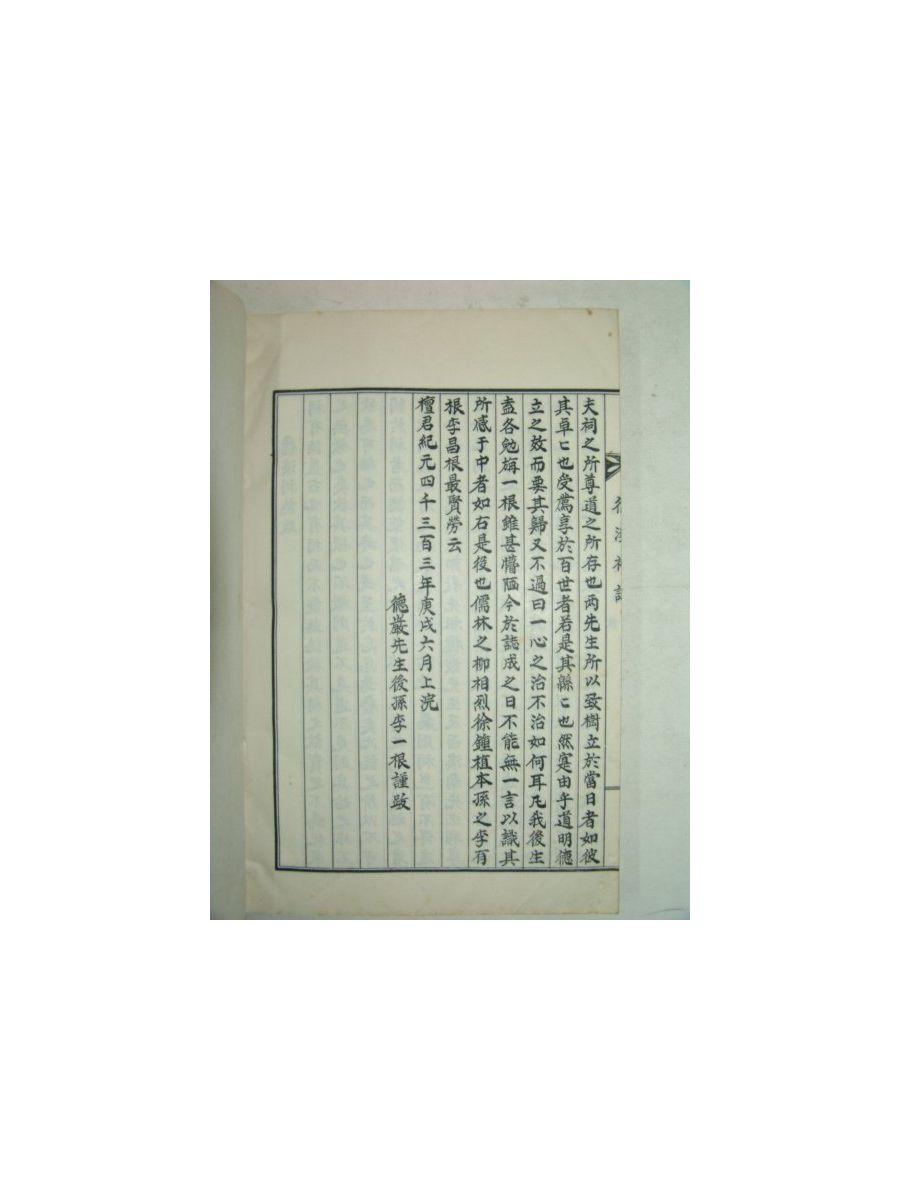 夫祠之所尊道之所存也两先生所以致樹立於當日者如彼
其卓〻也受薦享於百世者若是其縣〻也然寔由乎道明德
立之效而要其歸又不過曰一心之治不治如何耳凡我後生
盍各勉旃一根雖甚懵陋今於誌成之日不能無一言以識其
所感于中者如右是役也儒林之柳相烈徐鍾植本孫之李有
根李昌根最賢勞云
檀君紀元四千三百三年庚戌六月上浣
德巖先生後孫李一根謹跋